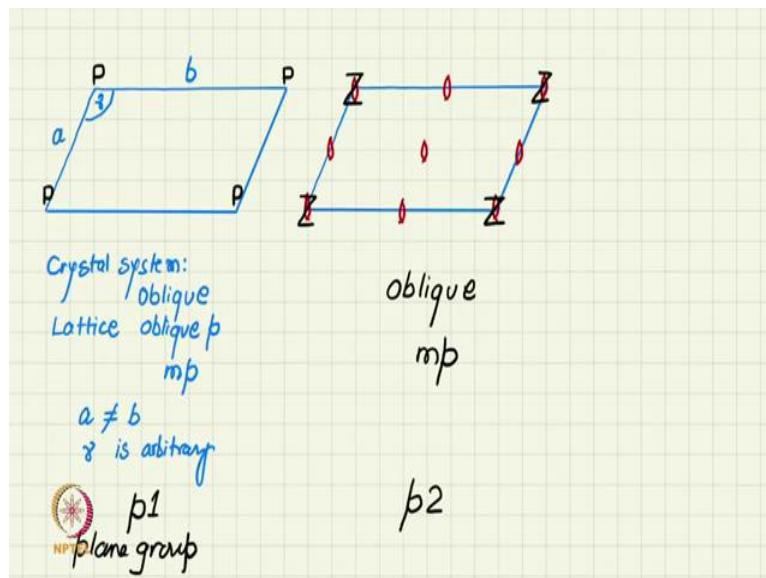 P b P
γ
a
P P
Z Z
Z Z
Crystal system:
oblique
Lattice oblique p
mp
a ≠ b
γ is arbitrary
p1
plane group
oblique
mp
p2
NPTEL